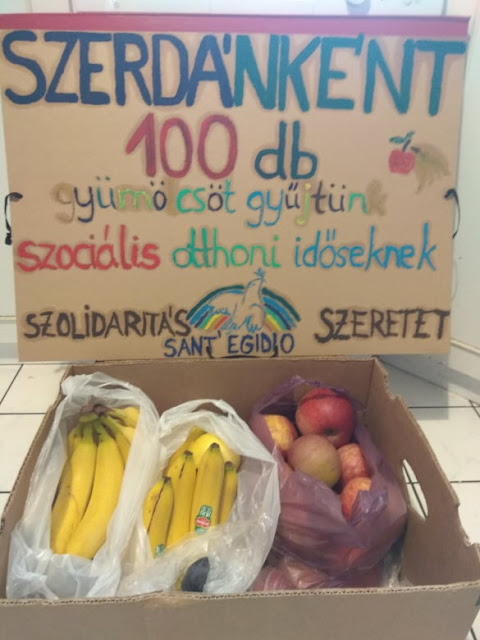 SZERDÁNKÉNT
100 db
gyümölcsöt gyűjtünk
szociális otthoni időseknek
SZOLIDARITÁS SZERETET
SANT' EGIDIO